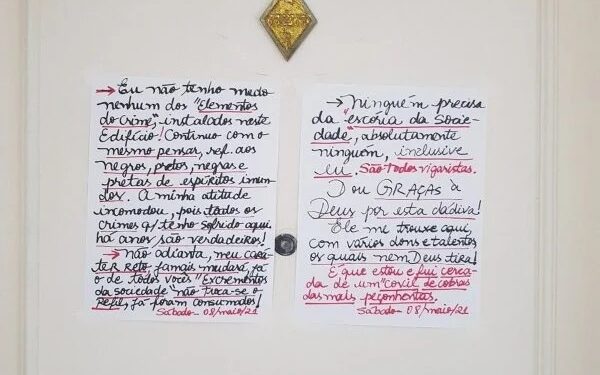 → Eu não tenho medo
nenhum dos "Elementos
do Crime", instalados neste
Edifício! Continuo com o
mesmo pensar, ref. aos
negros, pretos, negras e
pretas de espíritos imun-
dos. A minha atitude
incomodou, pois todos os
crimes q/ tenho sofrido aqui
há anos são verdadeiros!
→ Não adianta, meu cará-
ter reto, jamais mudará, já
o de todos vocês "Excrementos
da sociedade" não troca-se o
refil, já foram consumados!
Sábado - 08/maio/21
→ Ninguém precisa
da "escória da Socie-
dade", absolutamente
ninguém, inclusive
eu. São todos vigaristas.
Dou GRAÇAS à
Deus por esta dádiva!
Ele me trouxe aqui,
com vários dons e talentos
os quais nem Deus tira!
É que estou e fui cerca-
da de um "covil de cobras
das mais peçonhentas.
Sábado - 08/maio/21